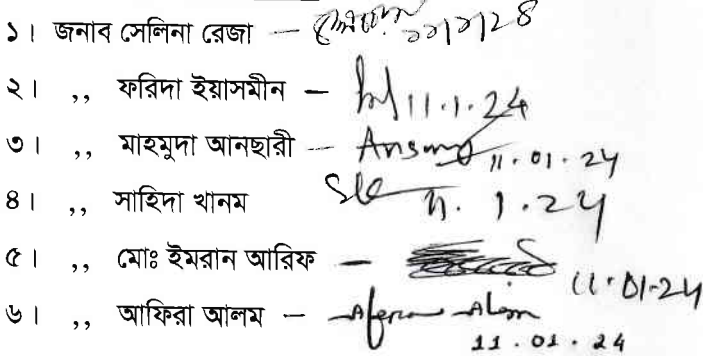 ১। জনাব সেলিনা রেজা – ১১/১/২৪
২। ,, ফরিদা ইয়াসমীন – 11.1.24
৩। ,, মাহমুদা আনছারী – Ansary 11.01.24
৪। ,, সাহিদা খানম 11.1.24
৫। ,, মোঃ ইমরান আরিফ – 11.01-24
৬। ,, আফিরা আলম – Afera Alam 11.01.24